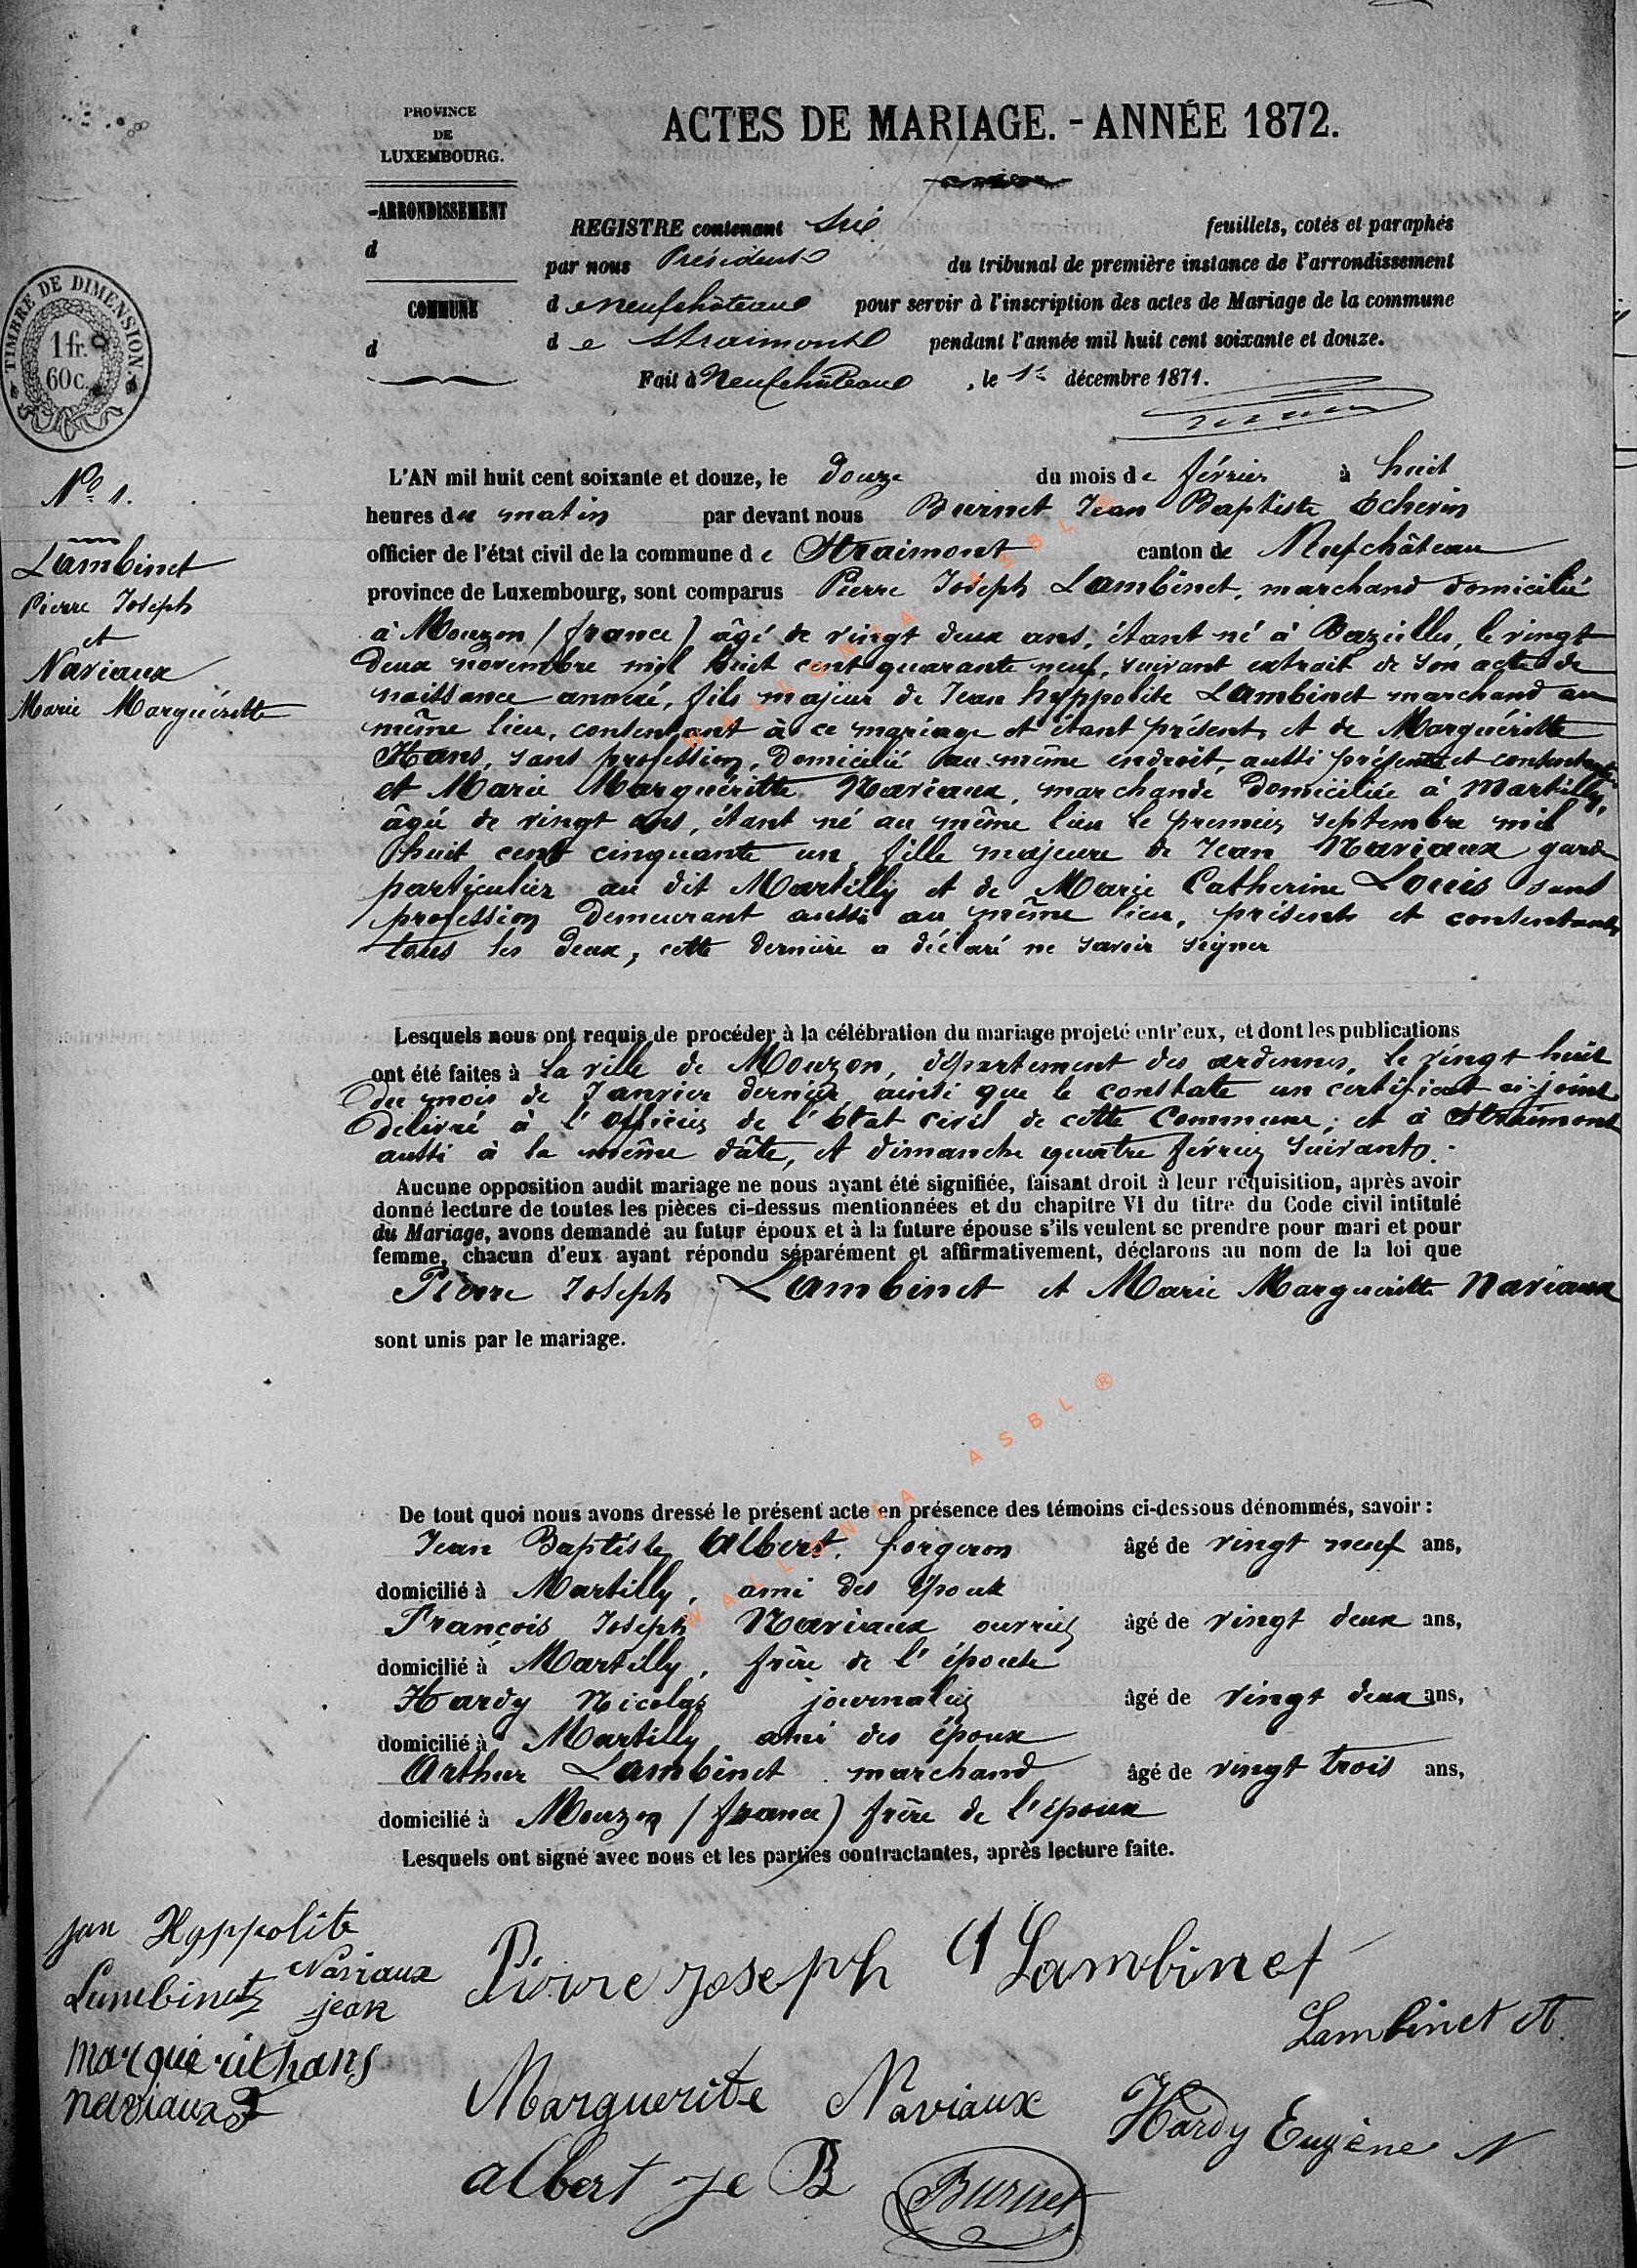 PROVINCE
DE
LUXEMBOURG.
ACTES DE MARIAGE. - ANNÉE 1872.
ARRONDISSEMENT
d
COMMUNE
d
TIMBRE DE DIMENSION.
1 fr.
60 c.
REGISTRE contenant Six feuillets, cotés et paraphés
par nous Président du tribunal de première instance de l'arrondissement
de Neufchâteau pour servir à l'inscription des actes de Mariage de la commune
de Straimont pendant l'année mil huit cent soixante et douze.
Fait à Neufchâteau, le 1er décembre 1871.
No 1.
Lambinet
Pierre Joseph
et
Naviaux
Marie Marguéritte
L'AN mil huit cent soixante et douze, le douze du mois de février à huit
heures du matin par devant nous Burnet Jean Baptiste Echevin
officier de l'état civil de la commune de Straimont canton de Neufchâteau
province de Luxembourg, sont comparus Pierre Joseph Lambinet, marchand domicilié
à Mouzon (france) âgé de vingt deux ans, étant né à Bazeilles, le vingt
deux novembre mil huit cent quarante neuf, suivant extrait de son acte de
naissance annexé, fils majeur de Jean hyppolite Lambinet marchand au
même lieu, consentant à ce mariage et étant présent, et de Marguéritte
Hans, sans profession, domicilié au même endroit, aussi présente et consentante
et Marie Marguéritte Naviaux, marchande domiciliée à Martilly,
âgée de vingt ans, étant né au même lieu le premier septembre mil
huit cent cinquante un, fille majeure de Jean Naviaux garde
particulier au dit Martilly et de Marie Catherine Louis sans
profession demeurant aussi au même lieu, présents et consentants
tous les deux, cette dernière a déclaré ne savoir signer
Lesquels nous ont requis de procéder à la célébration du mariage projeté entr'eux, et dont les publications
ont été faites à la ville de Mouzon, département des ardennes, le vingt huit
du mois de Janvier dernier, ainsi que le constate un certificat ci-joint
délivré à l'officier de l'Etat civil de cette Commune; et à Straimont
aussi à la même dâte, et dimanche quatre février suivant.
Aucune opposition audit mariage ne nous ayant été signifiée, faisant droit à leur réquisition, après avoir
donné lecture de toutes les pièces ci-dessus mentionnées et du chapitre VI du titre du Code civil intitulé
du Mariage, avons demandé au futur époux et à la future épouse s'ils veulent se prendre pour mari et pour
femme, chacun d'eux ayant répondu séparément et affirmativement, déclarons au nom de la loi que
Pierre Joseph Lambinet et Marie Marguéritte Naviaux
sont unis par le mariage.
De tout quoi nous avons dressé le présent acte en présence des témoins ci-dessous dénommés, savoir :
Jean Baptiste Albert, forgeron âgé de vingt neuf ans,
domicilié à Martilly, ami des époux
François Joseph Naviaux ouvrier âgé de vingt deux ans,
domicilié à Martilly, frère de l'épouse
Hardy Nicolas journalier âgé de vingt deux ans,
domicilié à Martilly ami des époux
Arthur Lambinet marchand âgé de vingt trois ans,
domicilié à Mouzon (france) frère de l'époux
Lesquels ont signé avec nous et les parties contractantes, après lecture faite.
jan Hyppolite
Lambinet
Naviaux
jean
Pierre joseph Lambinet
Lambinet A.
marguerithans
naviaux J
Marguerite Naviaux
Hardy Eugène N
albert je B
Burnet
WALLONIA ASBL ®
WALLONIA ASBL ®